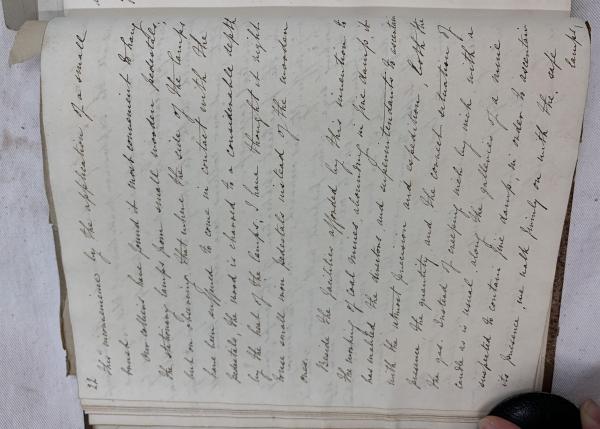 22
this inconvenience by the application of a small
brush.
Our others have found it most convenient to hang
the stationary lamps from small wooden pedestals,
but on observing that where the side of the lamps
have been suffered to come in contact with the
pedestals, the wood is charred to a considerable depth
by the heat of the lamps, I have thought it right
to use small iron pedestals instead of the wooden
ones.
Beside the facilities afforded by this invention to
the working of coal mines abounding in fire damp, it
has enabled the directors and superintendants to ascertain
with the utmost precision and expedition, both the
presence the quantity and the correct situation of
the gas. Instead of creeping inch by inch with a
candle as is usual, along the galleries of a mine
suspected to contain fire damp, in order to ascertain
its presence, we walk firmly on with the safe
lamps,